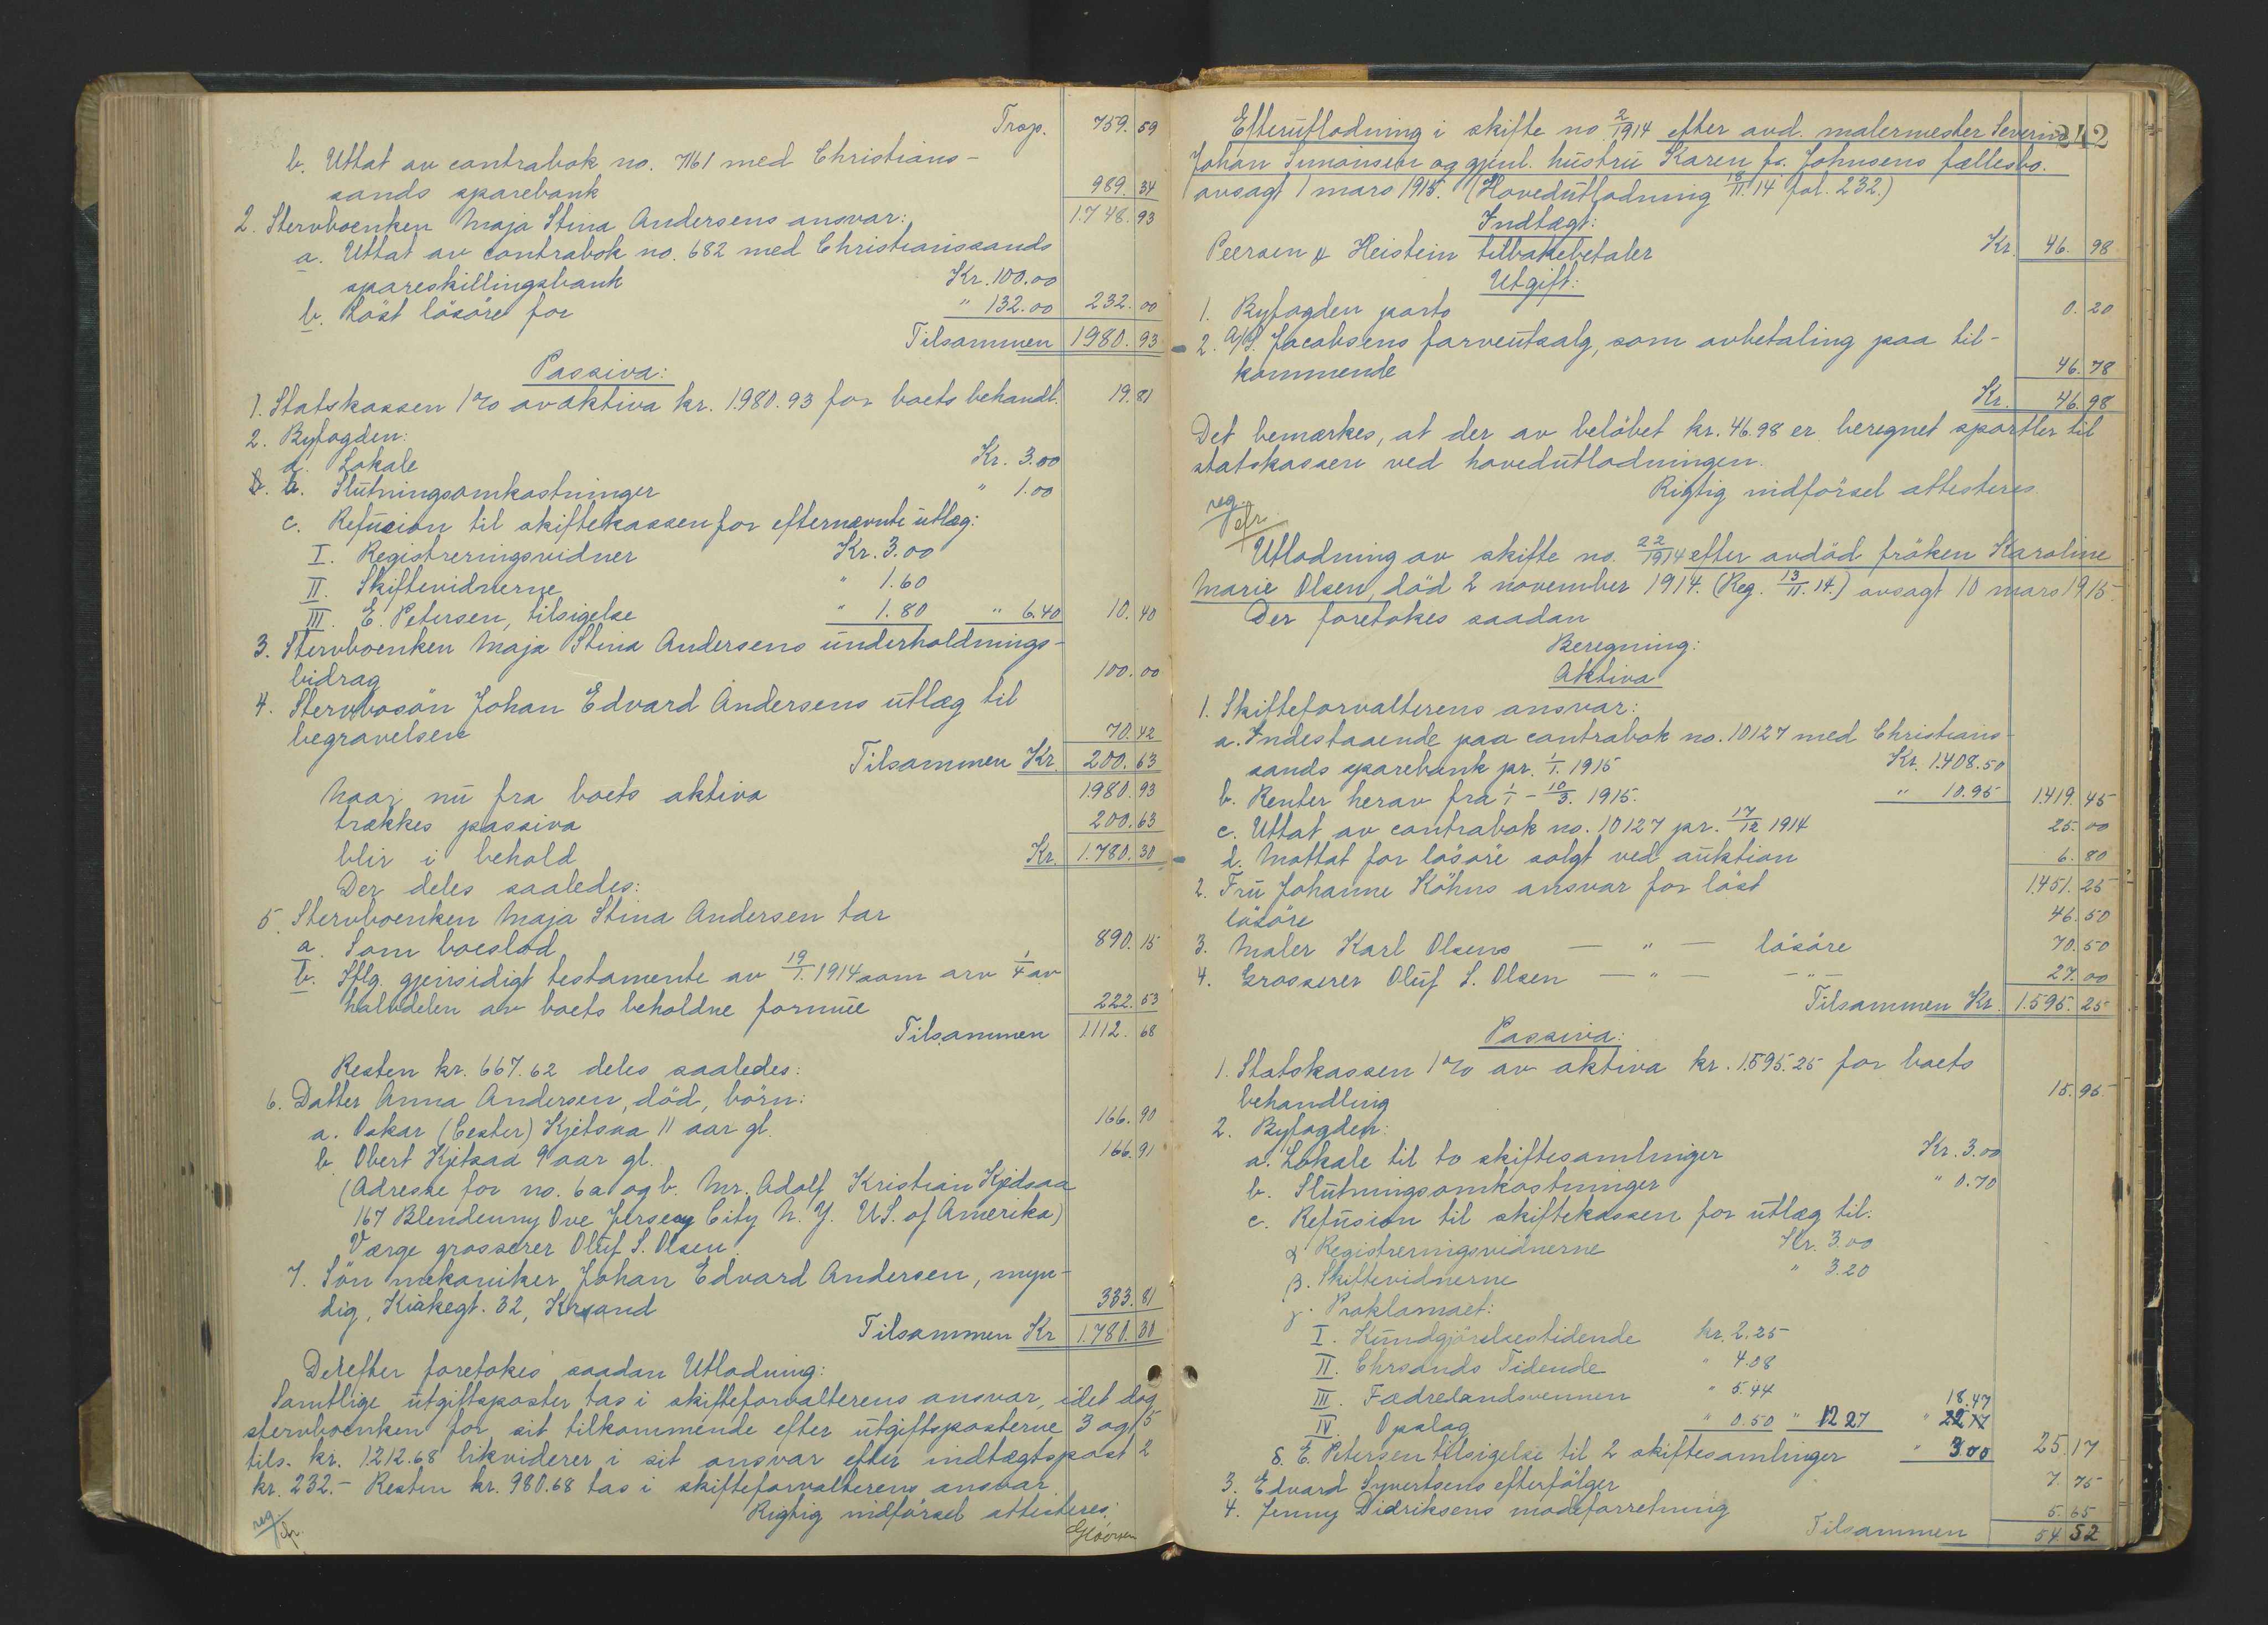 Trsp. 759.59
b. Uttat av contrabok no. 7161 med Christians-
sands sparebank 989.34
2. Stervboenken Maja Stina Andersens ansvar: 1.748.93
a. Uttat av contrabok no. 682 med Christianssands
spareskillingsbank Kr. 100.00
b. Löst lösöre for " 132.00 232.00
Tilsammen 1980.93
Passiva:
1. Statskassen 1% av aktiva kr. 1.980.93 for boets behandl. 19.81
2. Byfogden:
a. Lokale Kr. 3.00
b. Slutningsomkostninger " 1.00
c. Refusion til skiftekassen for efternævnte utlæg:
I. Registreringsvidner Kr. 3.00
II. Skiftevidnerne " 1.60
III. E. Petersen, tilsigelse " 1.80 " 6.40 10.40
3. Stervboenken Maja Stina Andersens underholdnings-
bidrag 100.00
4. Stervbosön Johan Edvard Andersens utlæg til
begravelsen 70.42
Tilsammen Kr. 200.63
Naar nu fra boets aktiva 1.980.93
trækkes passiva 200.63
blir i behold Kr. 1.780.30
Der deles saaledes:
5. Stervboenken Maja Stina Andersen tar
a. Som boeslod 890.15
b. Iflg. gjensidigt testamente av 19/1. 1914 som arv 1/4 av
halvdelen av boets beholdne formue 222.53
Tilsammen 1.112.68
Resten kr. 667.62 deles saaledes:
6. Datter Anna Andersen, död, börn:
a. Oskar (Cester) Kjetsaa 11 aar gl. 166.90
b. Obert Kjetsaa 9 aar gl. 166.91
(Adresse for no. 6a og b. Mr. Adolf Kristian Kjedsaa
167 Blendenny Ove Jersey City N. Y. U.S. of Amerika)
Værge grosserer Oluf S. Olsen.
7. Sön mekaniker Johan Edvard Andersen, myn-
dig, Kirkegt. 32, Krsand 333.81
Tilsammen Kr 1.780.30
Derefter foretokes saadan Utlodning:
Samtlige utgiftsposter tas i skifteforvalterens ansvar, idet dog
stervboenken for sit tilkommende efter utgiftsposterne 3 og 5
tils. kr. 1212.68 likviderer i sit ansvar efter indtægtspost 2
kr. 232.- Resten kr. 980.68 tas i skifteforvalterens ansvar.
Rigtig nidförsel attesteres:
reg
242
Efterutlodning i skifte no 2/1914 efter avd. malermester Severin
Johan Simonsen og gjenl. hustru Karen fs. Johnsens fællesbo.
avsagt 1 mars 1915. (Hovedutlodning 18/11.14 fol. 232.)
Indtægt:
Peersen & Heistein tilbakebetaler Kr. 46.98
Utgift:
1. Byfogden porto 0.20
2. A/S. Jacobsens farveutsalg, som avbetaling paa til-
kommende 46.78
Kr. 46.98
Det bemærkes, at der av belöbet kr. 46.98 er beregnet sportler til
statskassen ved hovedutlodningen.
Rigtig nidförsel attesteres
reg.
Utlodning av skifte no. 22/1914 efter avdöd fröken Karoline
Marie Olsen, död 2 november 1914. (Reg. 13/11.14.) avsagt 10 mars 1915.
Der foretokes saadan
Beregning:
Aktiva
1. Skifteforvalterens ansvar:
a. Indestaaende paa contrabok no. 10127 med Christians-
sands sparebank pr. 1/1. 1915 Kr. 1.408.50
b. Renter herav fra 1/1 - 10/3. 1915. " 10.95 1.419.45
c. Uttat av contrabok no. 10127 pr. 17/12 1914 25.00
d. Mottat for lösöre solgt ved auktion 6.80
2. Fru Johanne Köhns ansvar for löst 1.451.25
lösöre 46.50
3. Maler Karl Olsens — " — lösöre 70.50
4. Grosserer Oluf S. Olsen — " — — " — 27.00
Tilsammen Kr. 1.595.25
Passiva:
1. Statskassen 1% av aktiva kr. 1.595.25 for boets
behandling 15.95
2. Byfogden:
a. Lokale til to skiftesamlinger Kr. 3.00
b. Slutningsomkostninger " 0.70
c. Refusion til skiftekassen for utlæg til:
α Registreringsvidnerne Kr. 3.00
β. Skiftevidnerne " 3.20
γ. Proklamaet:
I. Kundgjörelsestidende kr. 2.25
II. Chrsands Tidende " 4.08
III. Fædrelandsvennen " 5.44 18.47
IV. Opslag " 0.50 " 12 27 "
δ. E. Petersen tilsigelse til 2 skiftesamlinger " 3.00 25.17
3. Edvard Syvertsens efterfölger 7.75
4. Jenny Didriksens modeforretning 5.65
Tilsammen 54.52